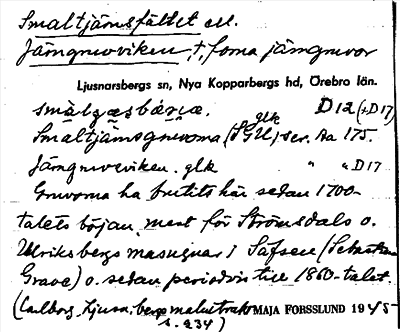 Smaltjärnsfältet ell.
Järngruvviken, †, forna järngruvor
Ljusnarsbergs sn, Nya Kopparbergs hd, Örebro län.
D12 (+D17)
glk
Smaltjärnsgruvorna (SGU) ser. Aa 175.
Järngruveviken. glk " " D17
Gruvorna ha brutits här sedan 1700-
talets början, mest för Strömsdals o.
Ulriksbergs masugnar i Säfsen (Sebastian
Grave) o. sedan periodvis till 1860-talet.
(Carlborg, Ljusn.bergs malmtrakt MAJA FORSSLUND 1945
s. 234)